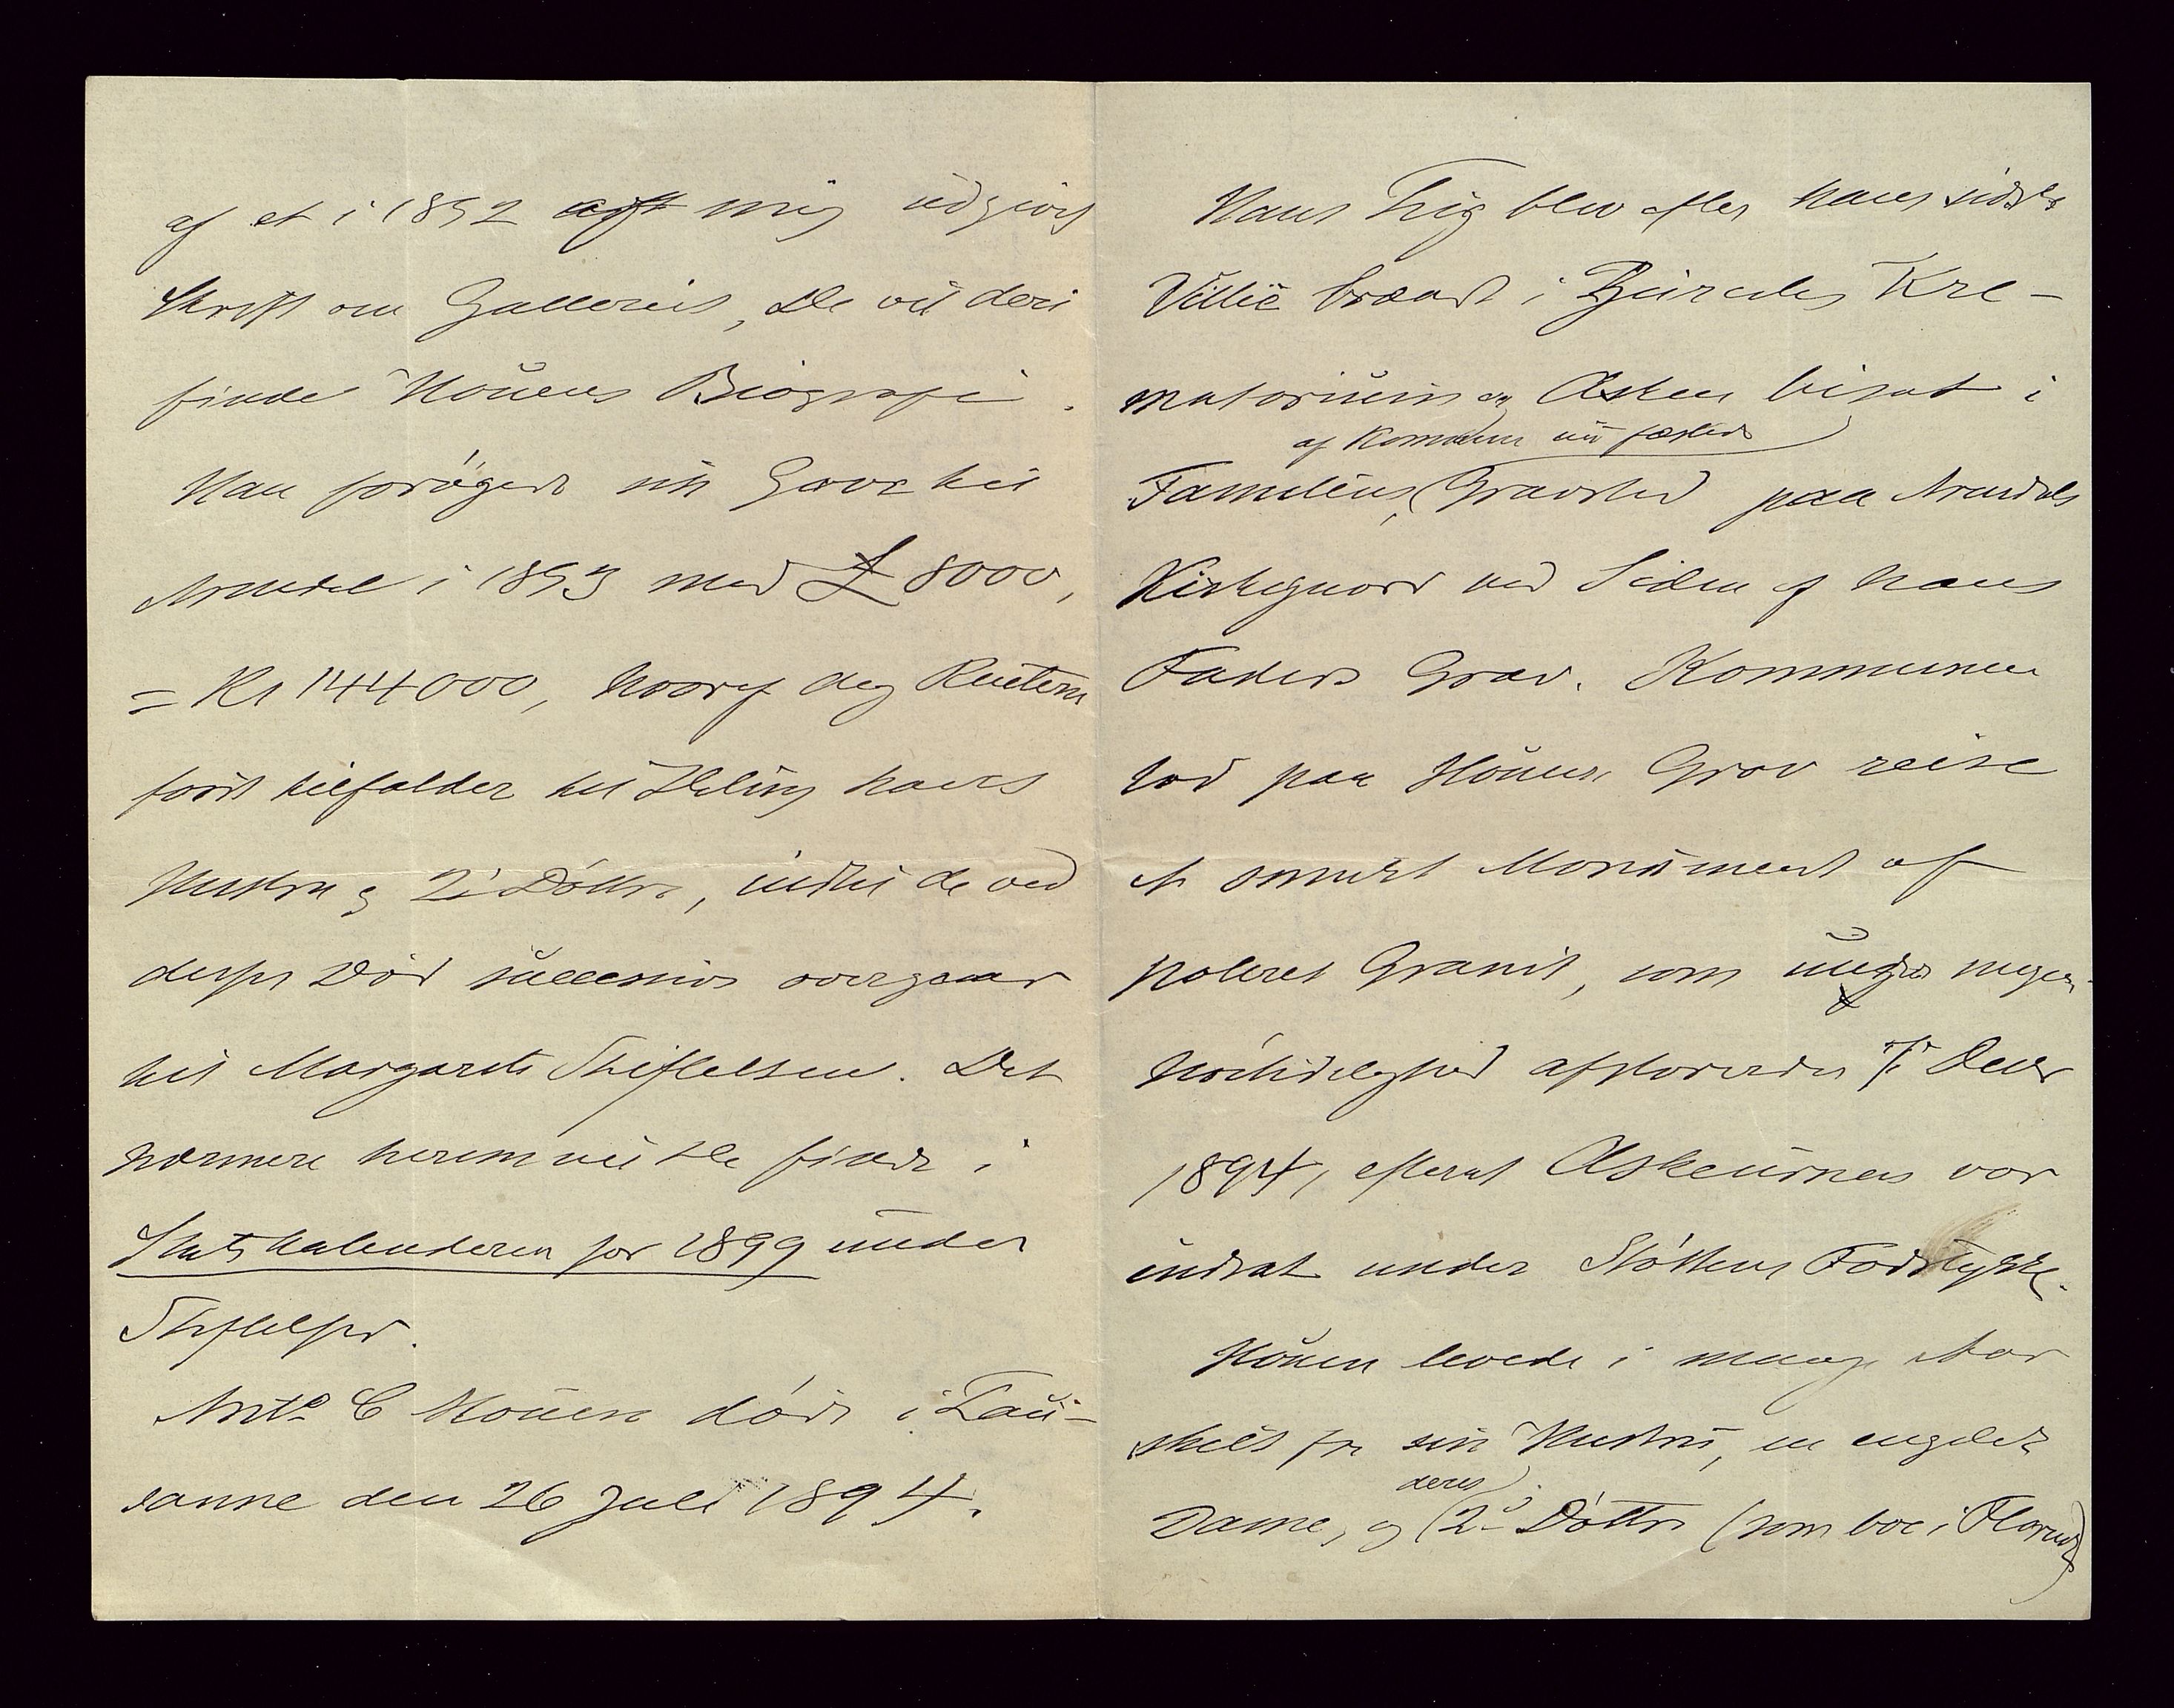 af et i 1892 af mig udgivet
Skrift om Galleriet, De vil deri
finde Houens Biografi.
Han forøgede sin Gave til
Arendal i 1893 med £ 8000,
= Kr 144000, hvoraf dog Renterne
først tilfalder til Deling hans
Hustru og 2 Døttre, indtil de ved
disses Død successivt overgaar
til Margarets Stiftelsen. Det
nærmere herom vil De finde i
Statskalenderen for 1899 under
Stiftelser.
Anto C Houen døde i Lau-
sanne den 26 Juli 1894.
Hans Lig blev efter hans sidste
Villie brændt i Zürichs Kre-
matorium og Asken bisat i
af Kommunen nu fæstede
Familiens Gravsted paa Arendals
Kirkegaard ved Siden af hans
Faders Grav. Kommunen
lod paa Houens Grav reise
et smukt Monument af
poleret Granit, som under megen
Høitidelighed afsløredes 7 Decbr
1894, efterat Askeurnen var
indsat under Støttens Fodstykke.
Houen levede i mange Aar
skilt fra sin Hustru, en engelsk
deres
Dame, og 2 Døttre (som boe i Florents)